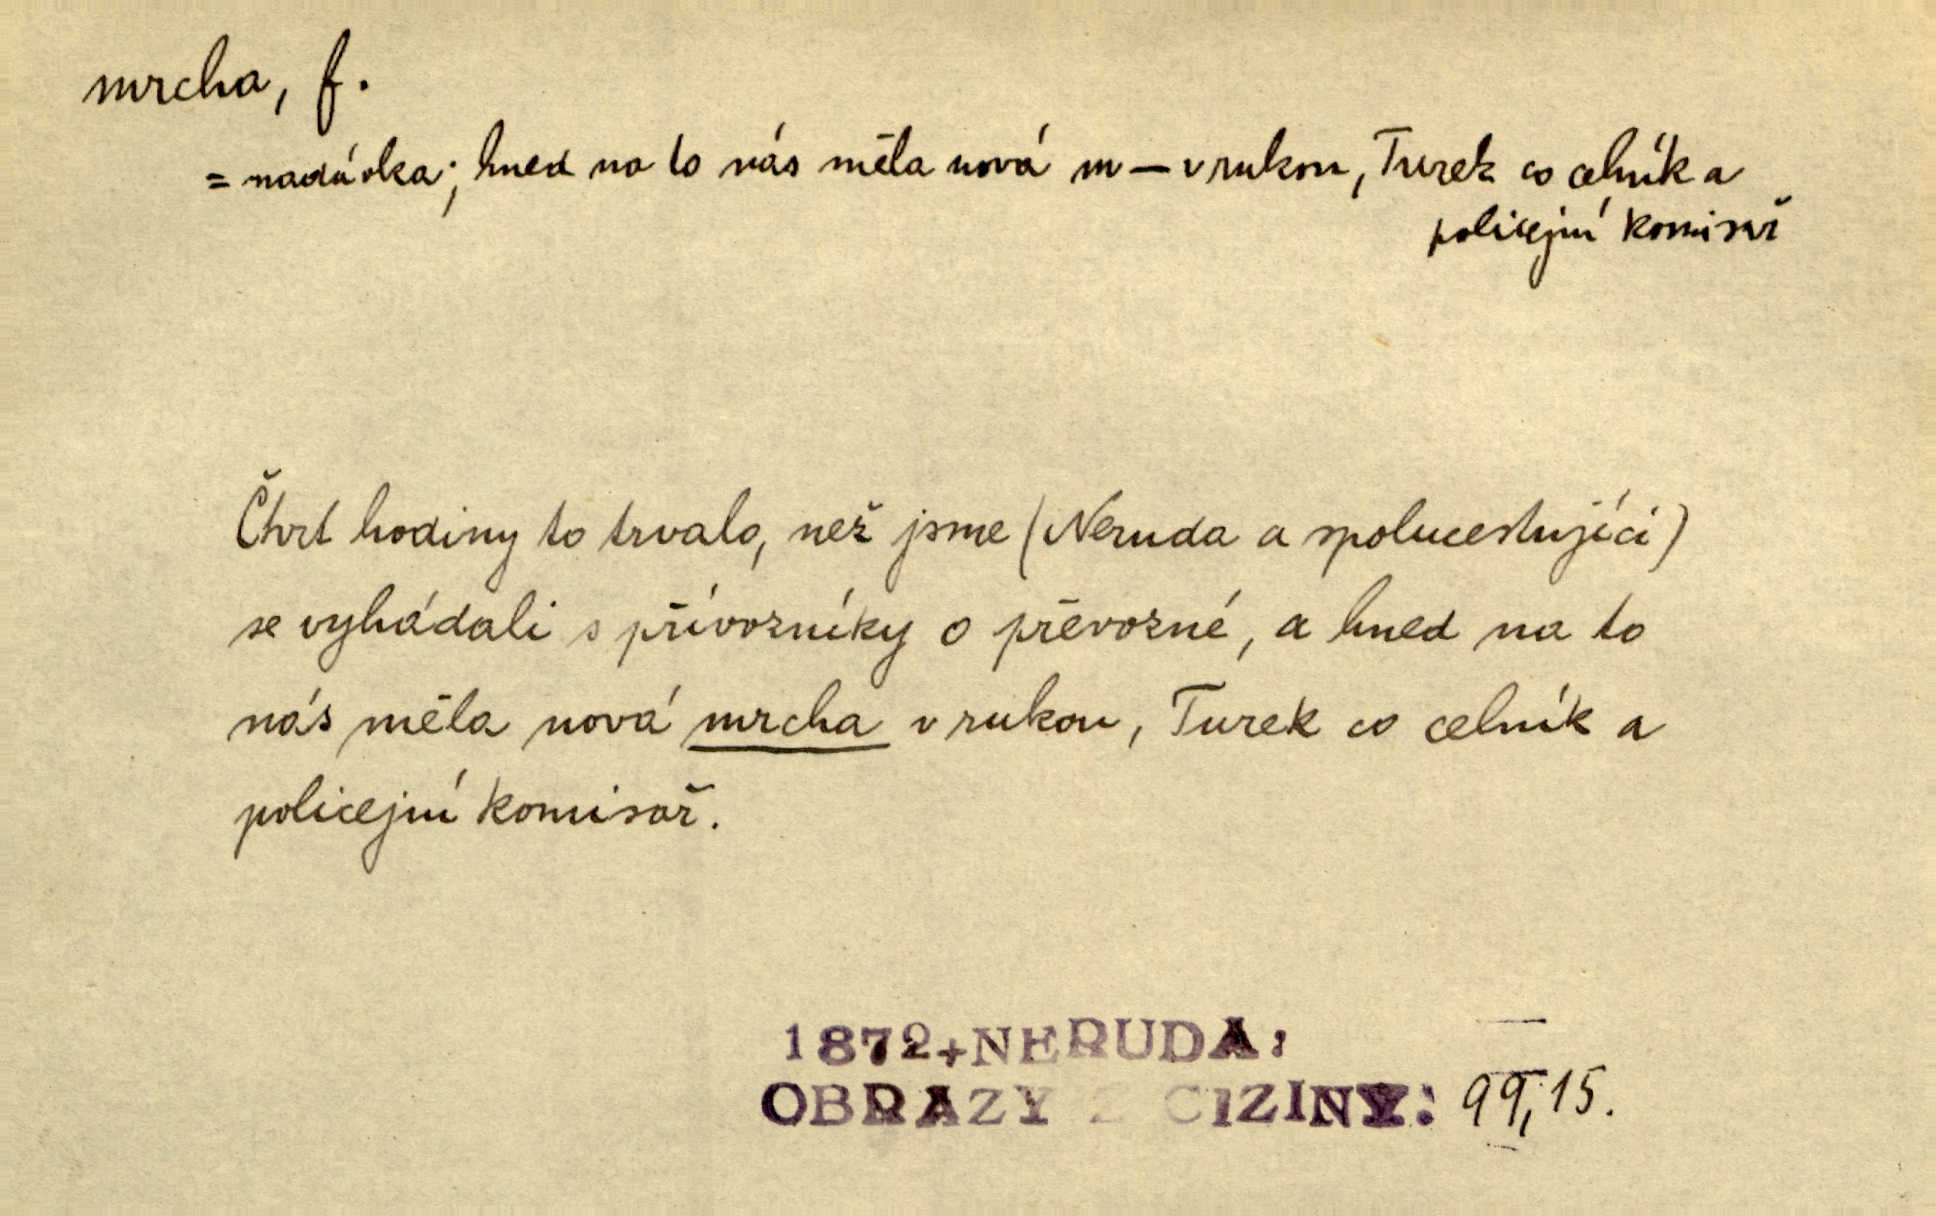 mrcha, f.
= nadávka; hned na to nás měla nová m – v rukou, Turek co celník a
policejní komisař
Čtvrt hodiny to trvalo, než jsme (Neruda a spolucestující)
se vyhádali s přívozníky o převozné, a hned na to
nás měla nová mrcha v rukou, Turek co celník a
policejní komisař.
1872+NERUDA:
OBRAZY Z CIZINY: 99,15.